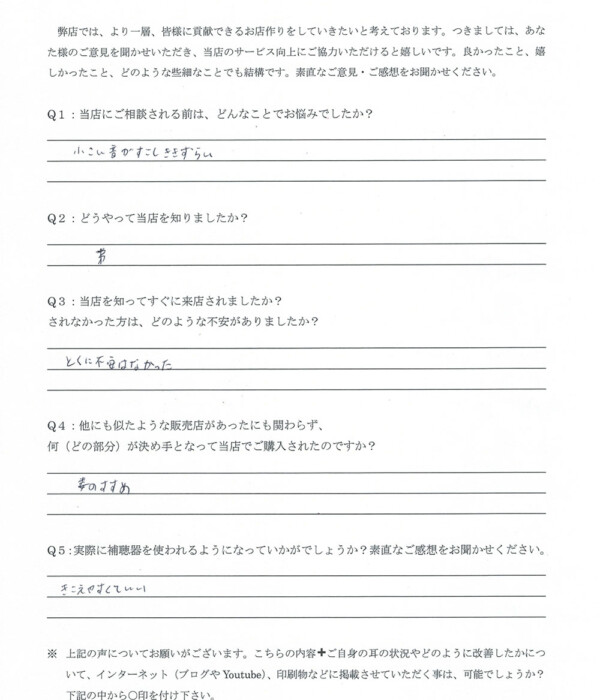 弊店では、より一層、皆様に貢献できるお店作りをしていきたいと考えております。つきましては、あな
た様のご意見を聞かせいただき、当店のサービス向上にご協力いただけると嬉しいです。良かったこと、嬉
しかったこと、どのような些細なことでも結構です。素直なご意見・ご感想をお聞かせください。
Q1：当店にご相談される前は、どんなことでお悩みでしたか？
小こい音がすこしききずらい
Q2：どうやって当店を知りましたか？
Q3：当店を知ってすぐに来店されましたか？
されなかった方は、どのような不安がありましたか？
とくに不安はなかった
Q4：他にも似たような販売店があったにも関わらず、
何（どの部分）が決め手となって当店でご購入されたのですか？
妻のすすめ
Q5：実際に補聴器を使われるようになっていかがでしょうか？素直なご感想をお聞かせください。
きこえやすくていい
※ 上記の声についてお願いがございます。こちらの内容+ご自身の耳の状況やどのように改善したかにつ
いて、インターネット（ブログや Youtube）、印刷物などに掲載させていただく事は、可能でしょうか？
下記の中から〇印を付け下さい。